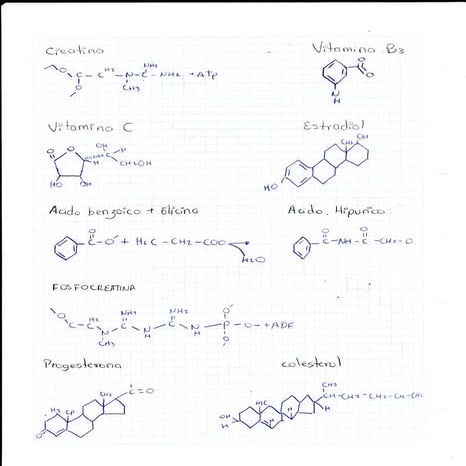 Creatina
Vitamina B3
C - CH2 - N - C - NH2 + ATP
NH2
CH3
Vitamina C
Estradiol
OH
H
CH2OH
HO
OH
OH
CH3
HO
Acido benzoico + Glicina
Acido. Hipurico.
C - O + H2C - CH2 - COO
H2O
C - NH - C - CH2 - O
FOSFOCREATINA
NH2
NH2
CH3
P - O - + ADF
Progesterona
colesterol
C = O
CH3
H3C
CH3
OH
H
CH - CH2 - CH2 - CH - CH3